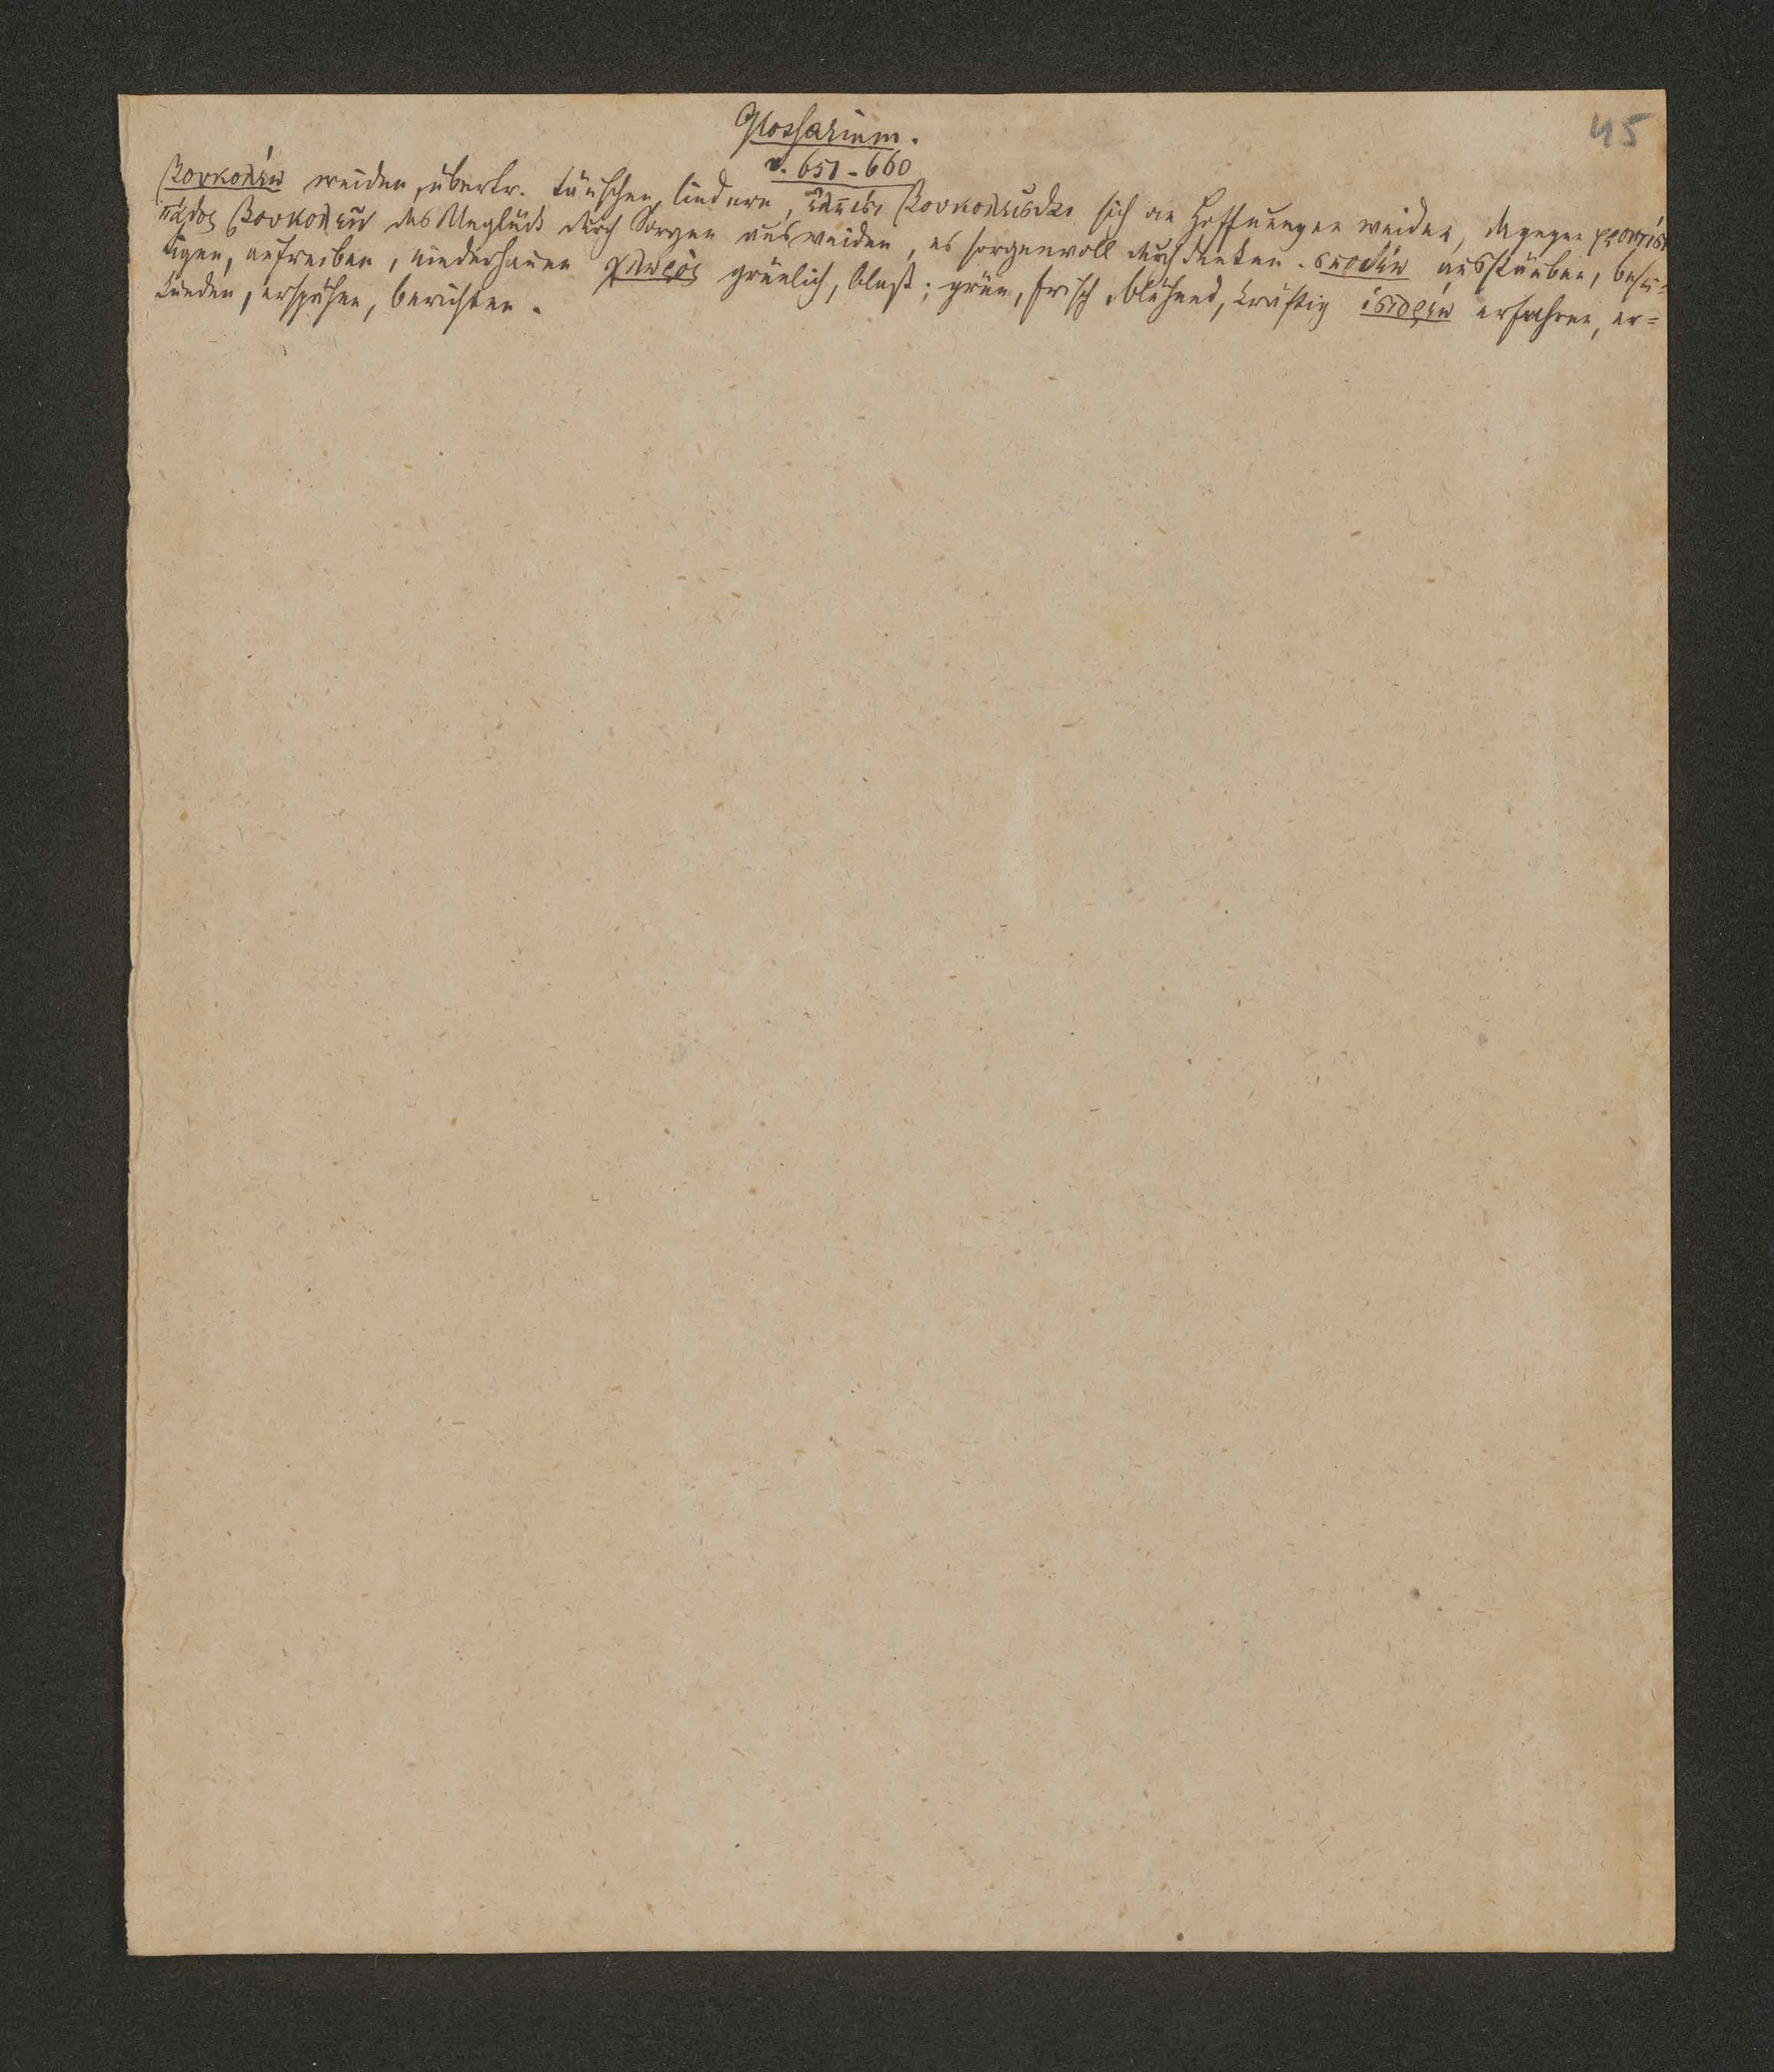 45
Glossarium.
v. 651-660
βουκολέω weiden, übertr. täuschen, lindern, ἐλπίσι βουκολεῖσθαι sich an Hoffnungen weiden, dagegen φροντίσι
πάθος βουκολεῖν das Unglück durch Sorgen ausweiden, es sorgenvoll durchdenken. σποδέω ausstäuben, besei=
tigen, aufreiben, niederhauen χλωρός grünlich, blaß; grün, frisch, blühend, kräftig ἱστορέω erfahren, er=
kunden, erspähen, berichten.